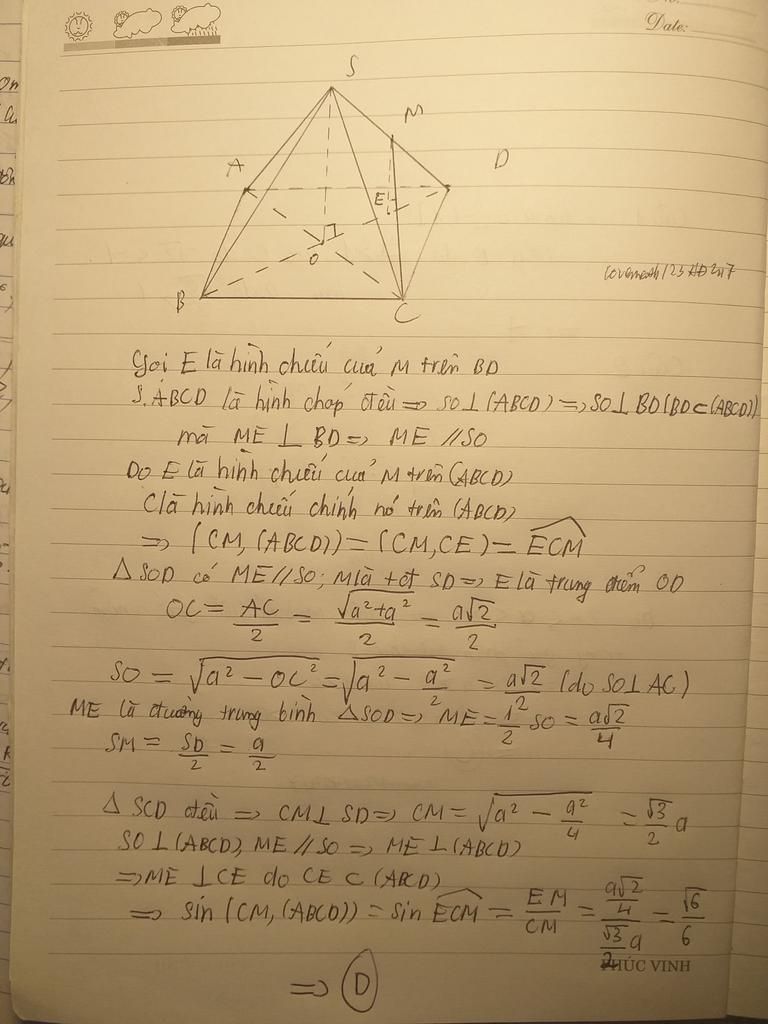 Date:
S
M
A
D
E
O
B
C
Gọi E là hình chiếu của M trên BD
S.ABCD là hình chóp đều => SO⊥(ABCD) => SO⊥BD(BD⊂(ABCD))
mà ME ⊥ BD => ME // SO
Do E là hình chiếu của M trên (ABCD)
C là hình chiếu chính nó trên (ABCD)
=> (CM, (ABCD)) = (CM, CE) = ECM
Δ SOD có ME // SO; M là tđ SD => E là trung điểm OD
OC = AC/2 = √(a²+a²)/2 = a√2/2
SO = √(a² - OC²) = √(a² - a²/2) = a√2/2 (do SO⊥AC)
ME là đường trung bình ΔSOD => ME = 1/2 SO = a√2/4
SM = SD/2 = a/2
Δ SCD đều => CM⊥SD => CM = √(a² - a²/4) = √3/2 a
SO⊥(ABCD), ME // SO => ME⊥(ABCD)
=> ME ⊥ CE do CE ⊂ (ABCD)
=> sin (CM, (ABCD)) = sin ECM = EM/CM = (a√2/4)/(√3/2 a) = √6/6
PHÚC VINH
=> D